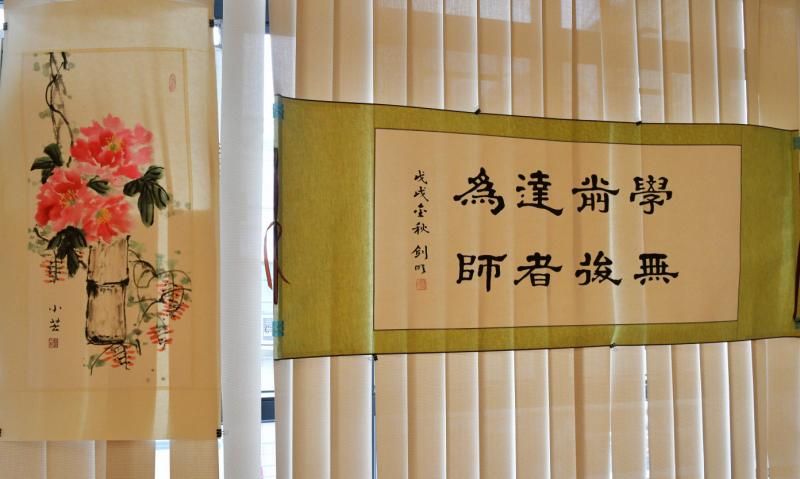 學無
前後
達者
為師
戊戌金秋 劍明
小芸